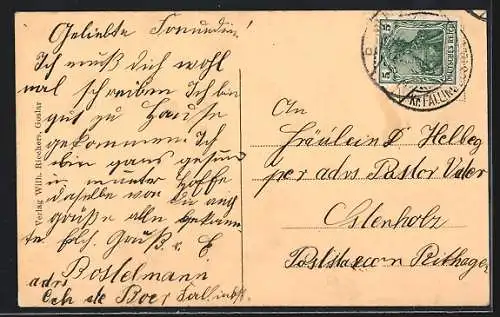 Geliebte Freundin!
Ich muß dich wohl
mal schreiben Ich bin
gut zu Hause
gekommen. Ich
bin ganz gesund
u. munter hoffe
daselbe von Du auch
grüße alle bekann-
te hlg. Gruß v. E
Bostelmann
adrs
de Boer Fallingb.
Verlag Wilh. Riechers, Goslar
5 DEUTSCHES REICH 5
FALLING
An
Fräulein D Helbeg
per adrs Pastor
Ostenholz
Poststation Rethagen